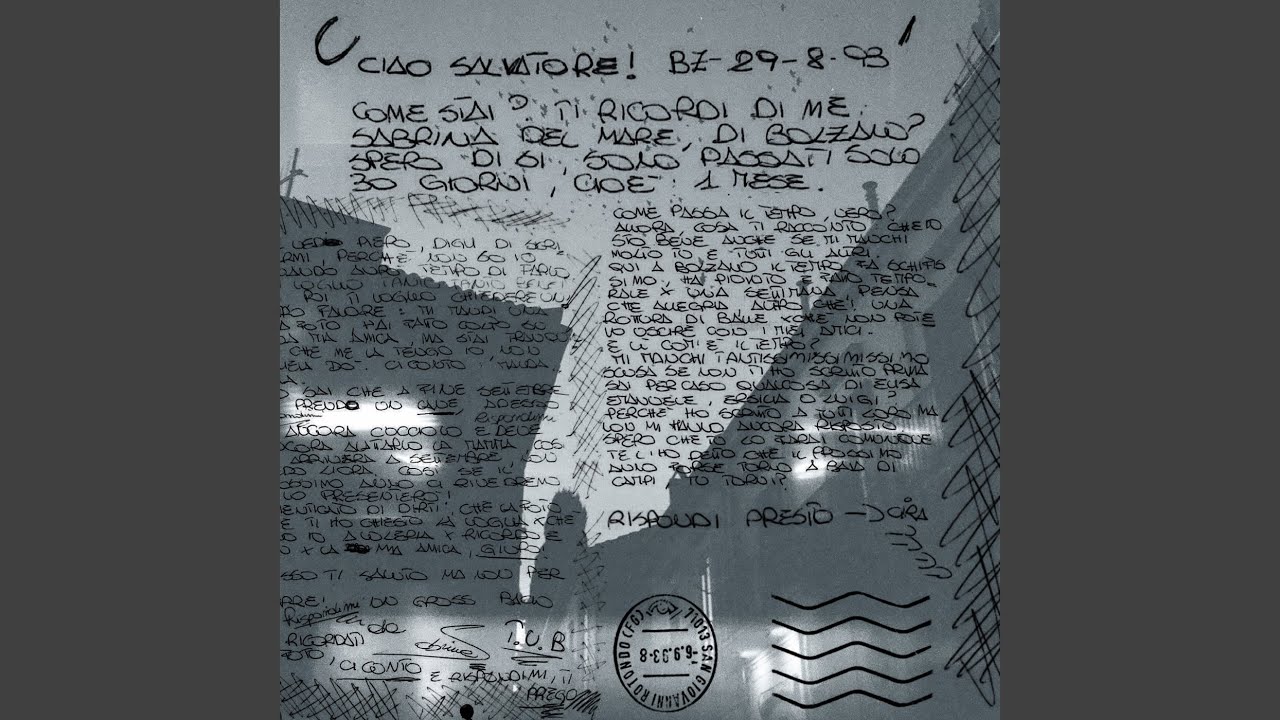 CIAO SALVATORE! BZ-29-8-93
COME STAI? TI RICORDI DI ME
SABRINA DEL MARE, DI BOLZANO?
SPERO DI SI, SONO PASSATI SOLO
30 GIORNI, CIOE' 1 MESE.
COME PASSA IL TEMPO, VERO?
ALLORA, COSA TI RACCONTO CHE IO
STO BENE ANCHE SE MI MANCHI
MOLTO TU E TUTTI GLI ALTRI.
QUI A BOLZANO IL TEMPO FA SCHIFIS
SIMO. HA PIOVUTO E FATO TEMPO-
RALE X UNA SETTIMANA PENSA
CHE ALLEGRIA ALTRO CHE! UNA
ROTTURA DI BALLE XCHE NON POTE
VO USCIRE CON I MIEI AMICI.
E LI COM'E' IL TEMPO?
MI MANCHI TANTISSIMISSIMISSIMO
SCUSA SE NON TI HO SCRITTO PRIMA
SAI PER CASO QUALCOSA DI ELISA
EMANUELE, ERSILIA O LUIGI?
PERCHE' HO SCRITTO A TUTTI LORO MA
NON MI HANNO ANCORA RISPOSTO
SPERO CHE TU LO FARAI COMUNQUE
TE L'HO DETTO CHE IL PROSSIMO
ANNO FORSE TORNO A BAIA DI
CAMPI, TU TORNI?
RISPONDI PRESTO → GIRA
PIERO, DIGLI DI SCRI
RMI, PERCHE' NON SO IO
TEMPO DI FARLO
POI TI VOGLIO CHIEDERE UN
FAVORE: TI MANDI UNA
FOTO HAI FATO COLPO SU
A MIA AMICA, MA STAI TRANQUI
CHE ME LA TENGO IO, NON
DO'. CI CONTO, MANDA
SAI CHE A FINE SETTEMBRE
PRENDO UN CANE ADESSO
Rispondimi
ANCORA CUCCIOLO E DEVE
ORA ALLATTARLO LA MAMMA COSI
ARRIVERA' A SETTEMBRE, CON
COSI SE IL
OSSIMO ANNO CI RIVEDREMO
LO PRESENTERO'!
MENTICAVO DI DIRTI! CHE LA FOTO
E TI HO CHIESTO LA VOGLIO XCHE
IO VOLERLA X RICORDO E
X LA MIA AMICA, GIURO.
SSO TI SALUTO MA NON PER
RRE! UN GROSS BACIO
Rispondimi
da T.V.B
RICORDATI
FOTO, CI CONTO E RISPONDIMI, TI
PREGO
71013 SAN GIOVANNI ROTONDO (FG)
-6.9.93-8